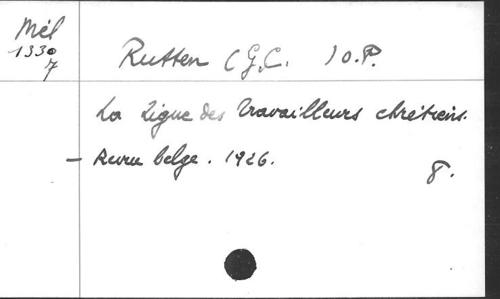 Mél
1330
7
Rutten (G.C. ) O.P.
La Ligue des Travailleurs chrétiens.
- Revue belge. 1926.
8.